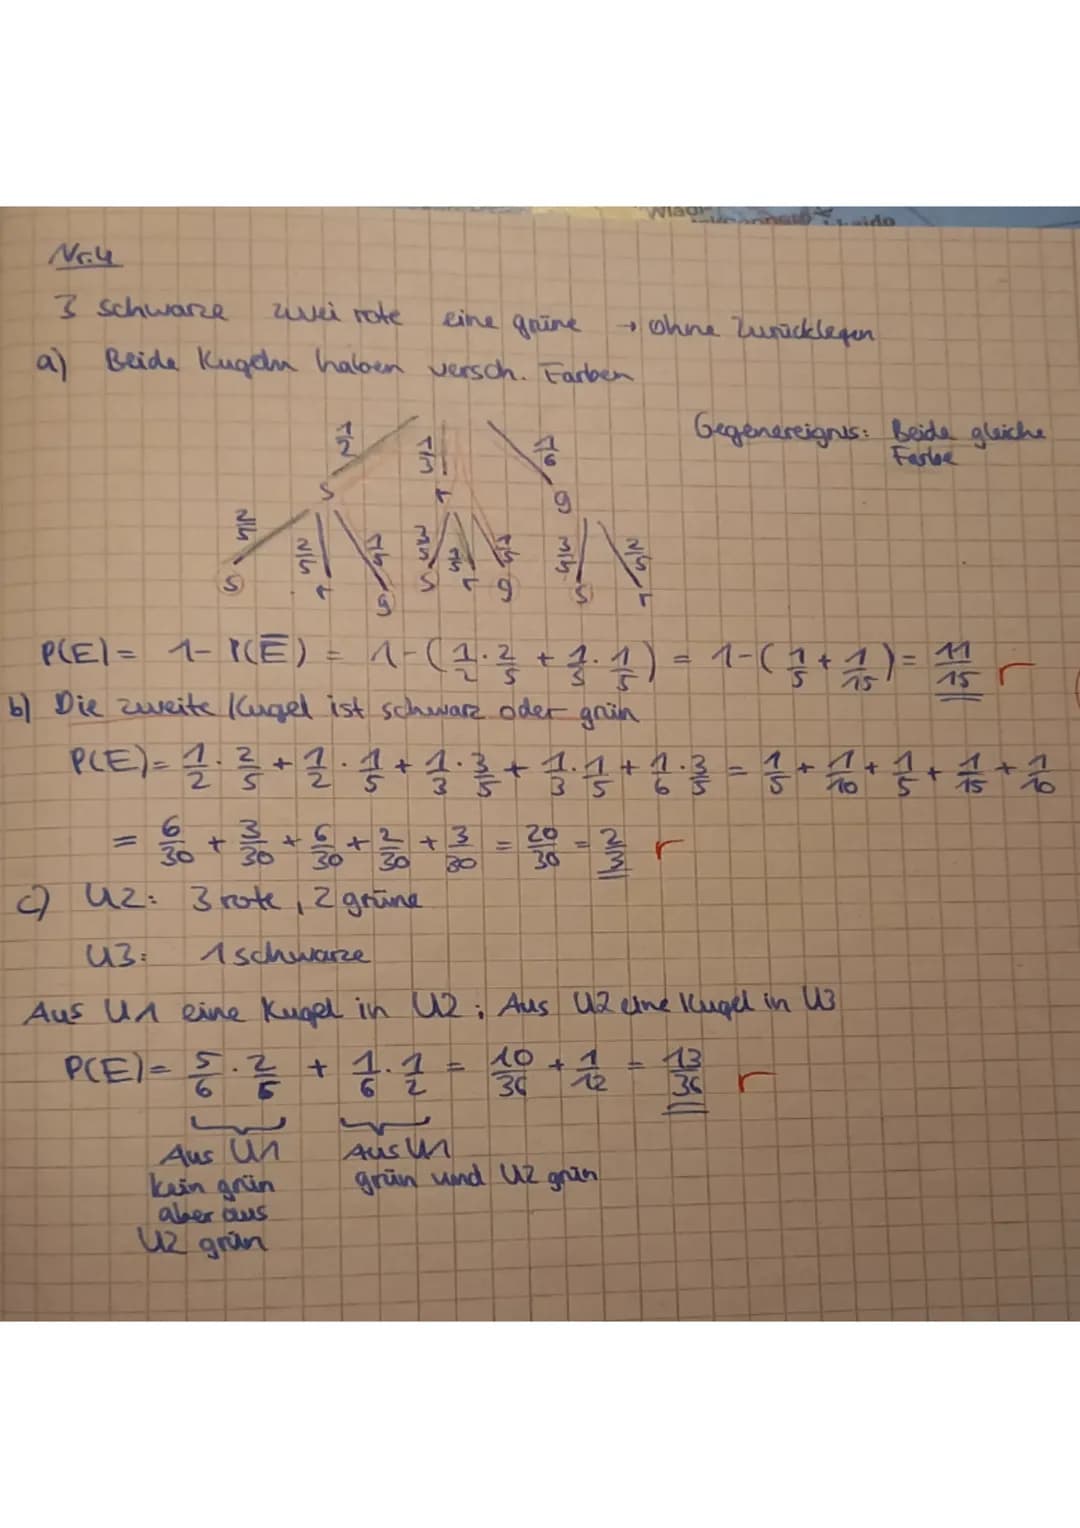 Nr.4
3 schwarze zwei rote eine grüne → ohne Zurücklegen
a) Beide Kugeln haben versch. Farben
Gegenereignis: Beide gleiche Farbe
1/2 1/3 1/6
s r g
2/5 2/5 1/5 3/5 1/5 1/5 3/5 2/5
s r g s r g s r
P(E) = 1 - P(E̅) = 1 - (1/2 · 2/5 + 1/3 · 1/5) = 1 - (1/5 + 1/15) = 11/15 r
b) Die zweite Kugel ist schwarz oder grün
P(E) = 1/2 · 2/5 + 1/2 · 1/5 + 1/3 · 3/5 + 1/3 · 1/5 + 1/6 · 3/5 = 1/5 + 1/10 + 1/5 + 1/15 + 1/10
= 6/30 + 3/30 + 6/30 + 2/30 + 3/30 = 20/30 = 2/3 r
c) U2: 3 rote, 2 grüne
U3: 1 schwarze
Aus U1 eine Kugel in U2; Aus U2 eine Kugel in U3
P(E) = 5/6 · 2/6 + 1/6 · 1/2 = 10/36 + 1/12 = 13/36 r
Aus U1 kein grün aber aus U2 grün
Aus U1 grün und U2 grün